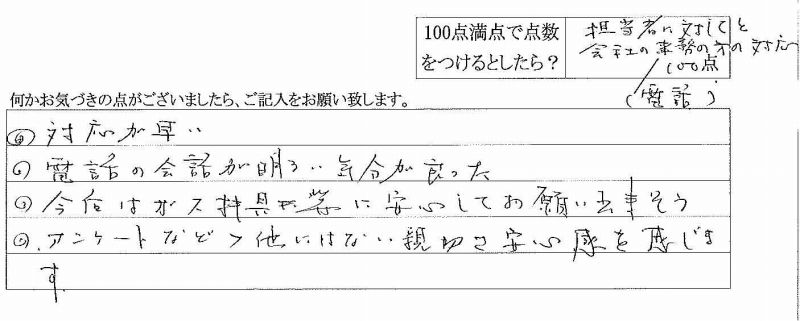 100点満点で点数
をつけるとしたら？
担当者に対してと
会社の事務の方の対応
100点
（電話）
何かお気づきの点がございましたら、ご記入をお願い致します。
◎対応が早い
◎電話の会話が明るい気分が良かった
◎今后はガス器具等に安心してお願い出来そう
◎アンケートなど 他にはない親切さ安心感を感じま
す